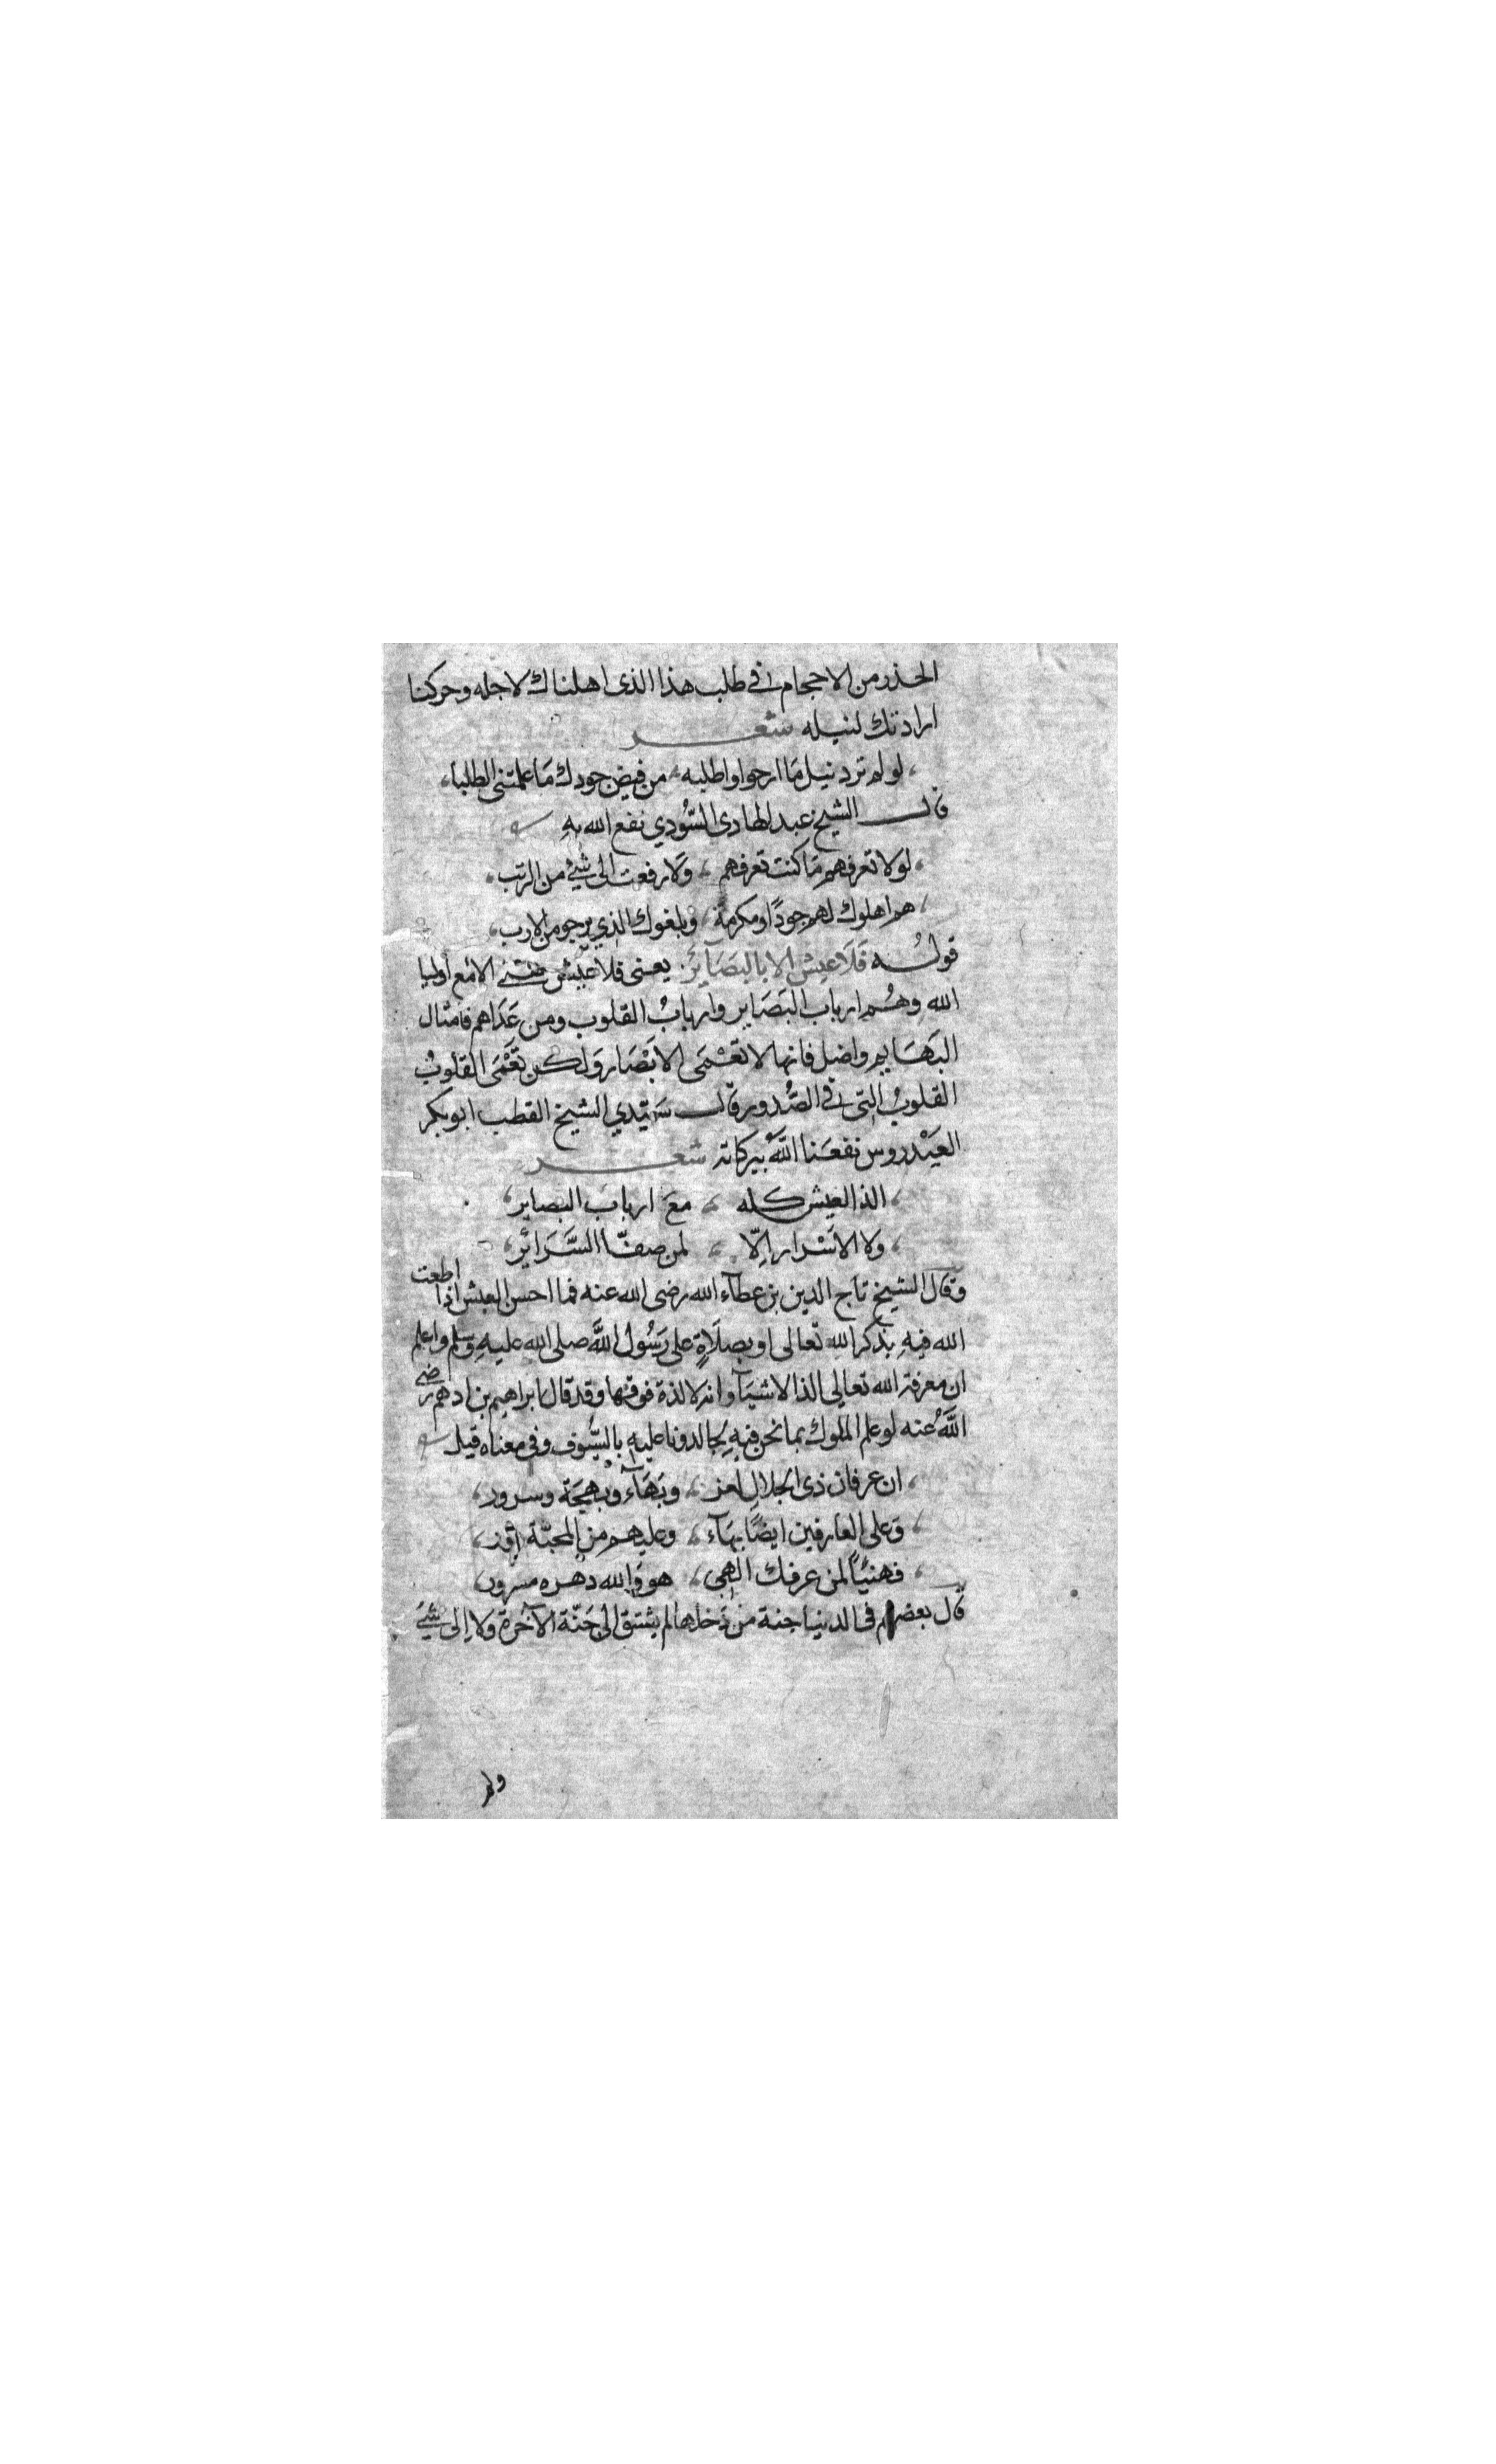 الحذر من الاحجام في طلب هذا الذى اهلناك لاجله وحركنا
ارادتك لنيله شعر
لو لم ترد نيل مَا ارجوا واطلبه ، من فيض جودك مَا علمتنى الطلبا
قال الشيخ عبد الهادى السُّودي نفع الله بهِ
لولا تعرفهم مَا كنت تعرفهم ، وَلا رفعت الى شيئ من الرتب
هم اهلوك لهم جودًا ومكرمة ، وبلغوك الذي يرجو من الارب
قولُه فَلَا عيش الا بالبَصَآئِرْ يعنى فلا عيش الا مع أوليا
الله وهُم ارباب البَصَاير وارباب القلوب ومن عَدَاهم فامثال
البَهَايم واضل فانها لا تعْمَى الابْصَار وَلكن تَعْمَى القلوبُ
القلوبُ التى في الصُّدور قال سَيّدي الشيخ القطب ابو بكر
العَيْدروس نفعَنا اللَّهُ ببركاته شعر
الذ العيش كله ، معَ ارباب البصاير
ولا الاسْرار اِلّا ، لمن صفّا السَّرَائر
وقال الشيخ تاج الدين بن عطآء الله رضى الله عنه فما احسن العيش اذا اطعت
الله فيهِ بذكر الله تعالى او بصلَاةٍ على رَسُول اللَّه صلى الله عليهِ وسلم واعلم
ان معرفة الله تعالي الذ الاشيَآ وانه لا لذة فوقها وقد قال ابراهيم بن ادهم رضي
اللَّهُ عنه لو علم الملوك بما نحن فيهِ لجالدونا عليهِ بالسّيُوف وفى معناه قيل
ان عرفان ذى الجلال لعز ، وبَهَآء وبهجَة وسرور
وَعلى العارفين ايضًا بهَآء ، وعليهم من المحبّة نور
فهنيئًا لمن عرفك الهي ، هو وَالله دهره مسرور
قال بعضهم فى الدنيا جنة من دَخلها لم يشتق الى جَنّة الآخرة ولا اِلى شيئ
ولم